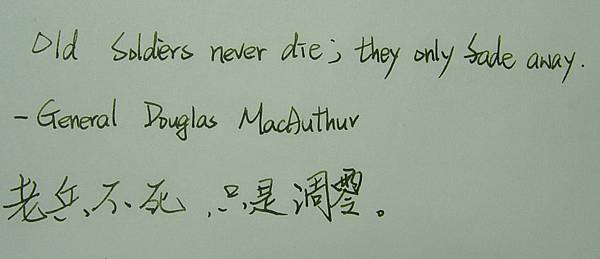 Old Soldiers never die; they only fade away.
- General Douglas MacAuthur
老兵不死,只是凋零。